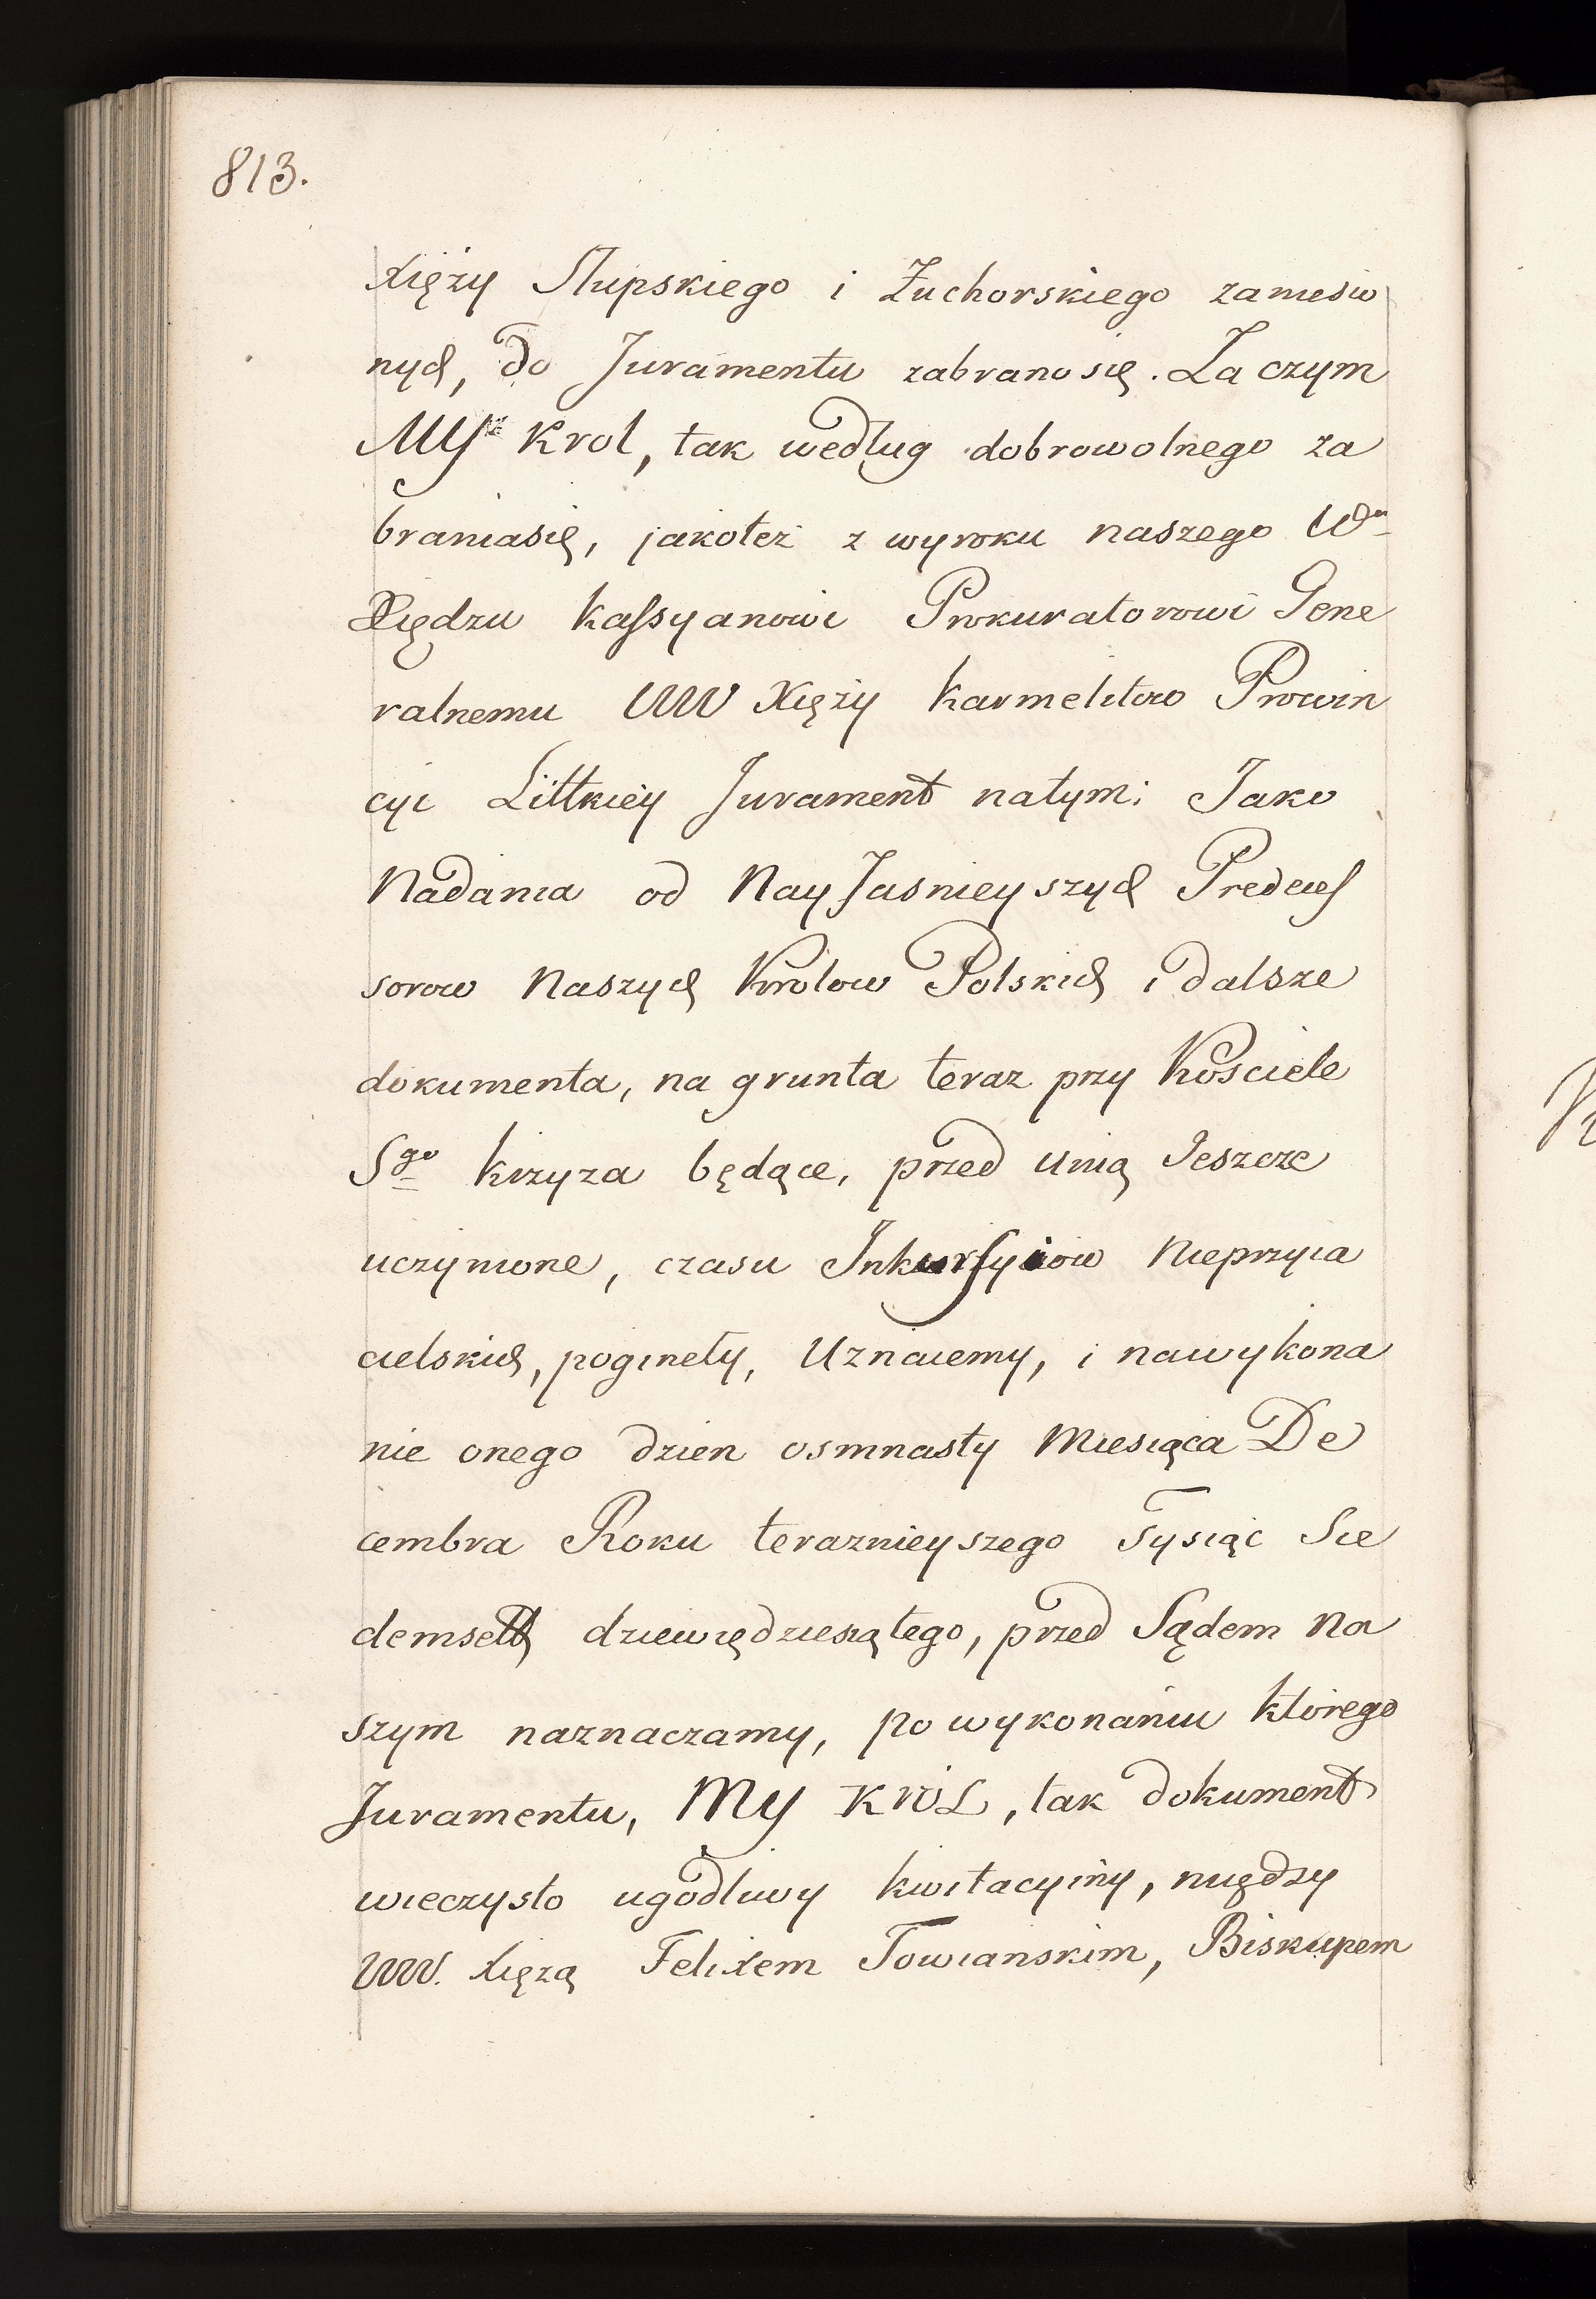 813.
Xięży Słupskiego i Żuchorskiego zaniesio
nych, do Juramentu zabrano się. Za czym
MY Krol, tak według dobrowolnego za
braniasię, jakoteż z wyroku naszego Wu
Xiędzu Kassyanowi Prokuratorowi Gene
ralnemu WW Xięży Karmelitow Prowin
cyi Littkiey Jurament natym: Jako
Nadania od NayJasnieyszych Predeces
sorow Naszych Królow Polskich i dalsze
dokumenta, na grunta teraz przy Kościele
Sgo Krzyza będące, przed Unią Jeszcze
uczynione, czasu Inkursyiow Nieprzyia
cielskich, pogineły, Uznaiemy, i nawykona
nie onego dzien osmnasty Miesiąca De
cembra Roku teraznieyszego Tysiąc Sie
demset dziewiędziesiątego, przed Sądem Na
szym naznaczamy, po wykonaniu ktorego
Juramentu, MY KRÓL, tak dokument
wieczysto ugodliwy kwitacyiny, między
WW. Xięzą Felixem Towianskim, Biskupem